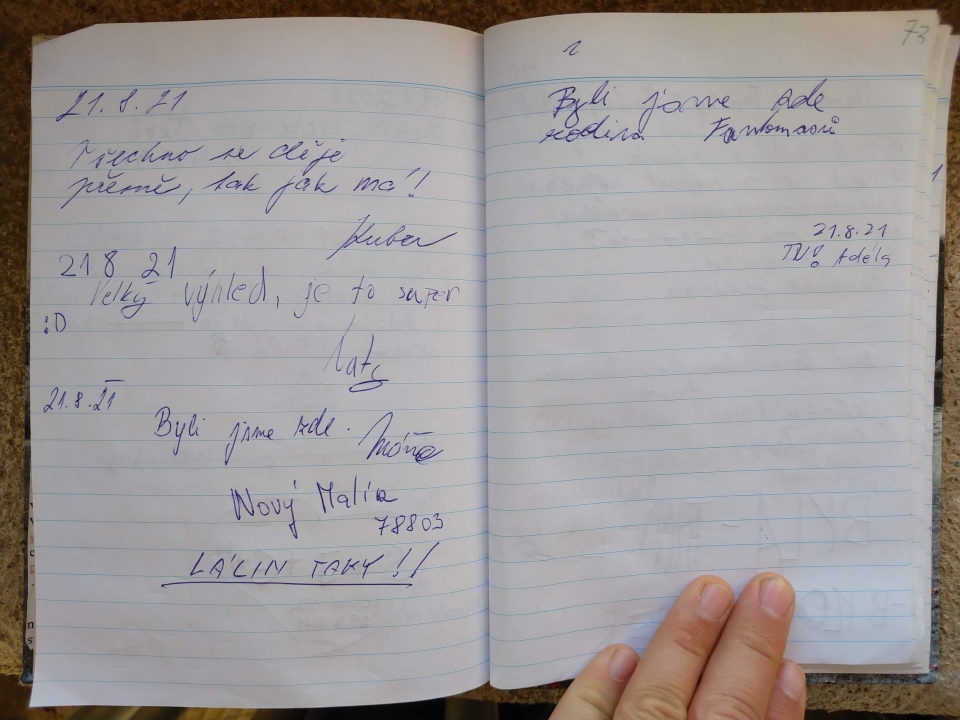 21.8.21
Všechno se děje
přesně, tak jak má!
Kuba
21 8 21
Velký výhled, je to super
:D
21.8.21
Byli jsme zde.
Nový Malín
78803
LÁLIN TAKY!!
73
Byli jsme zde
rodina Fantomasů
21.8.21
Adéla